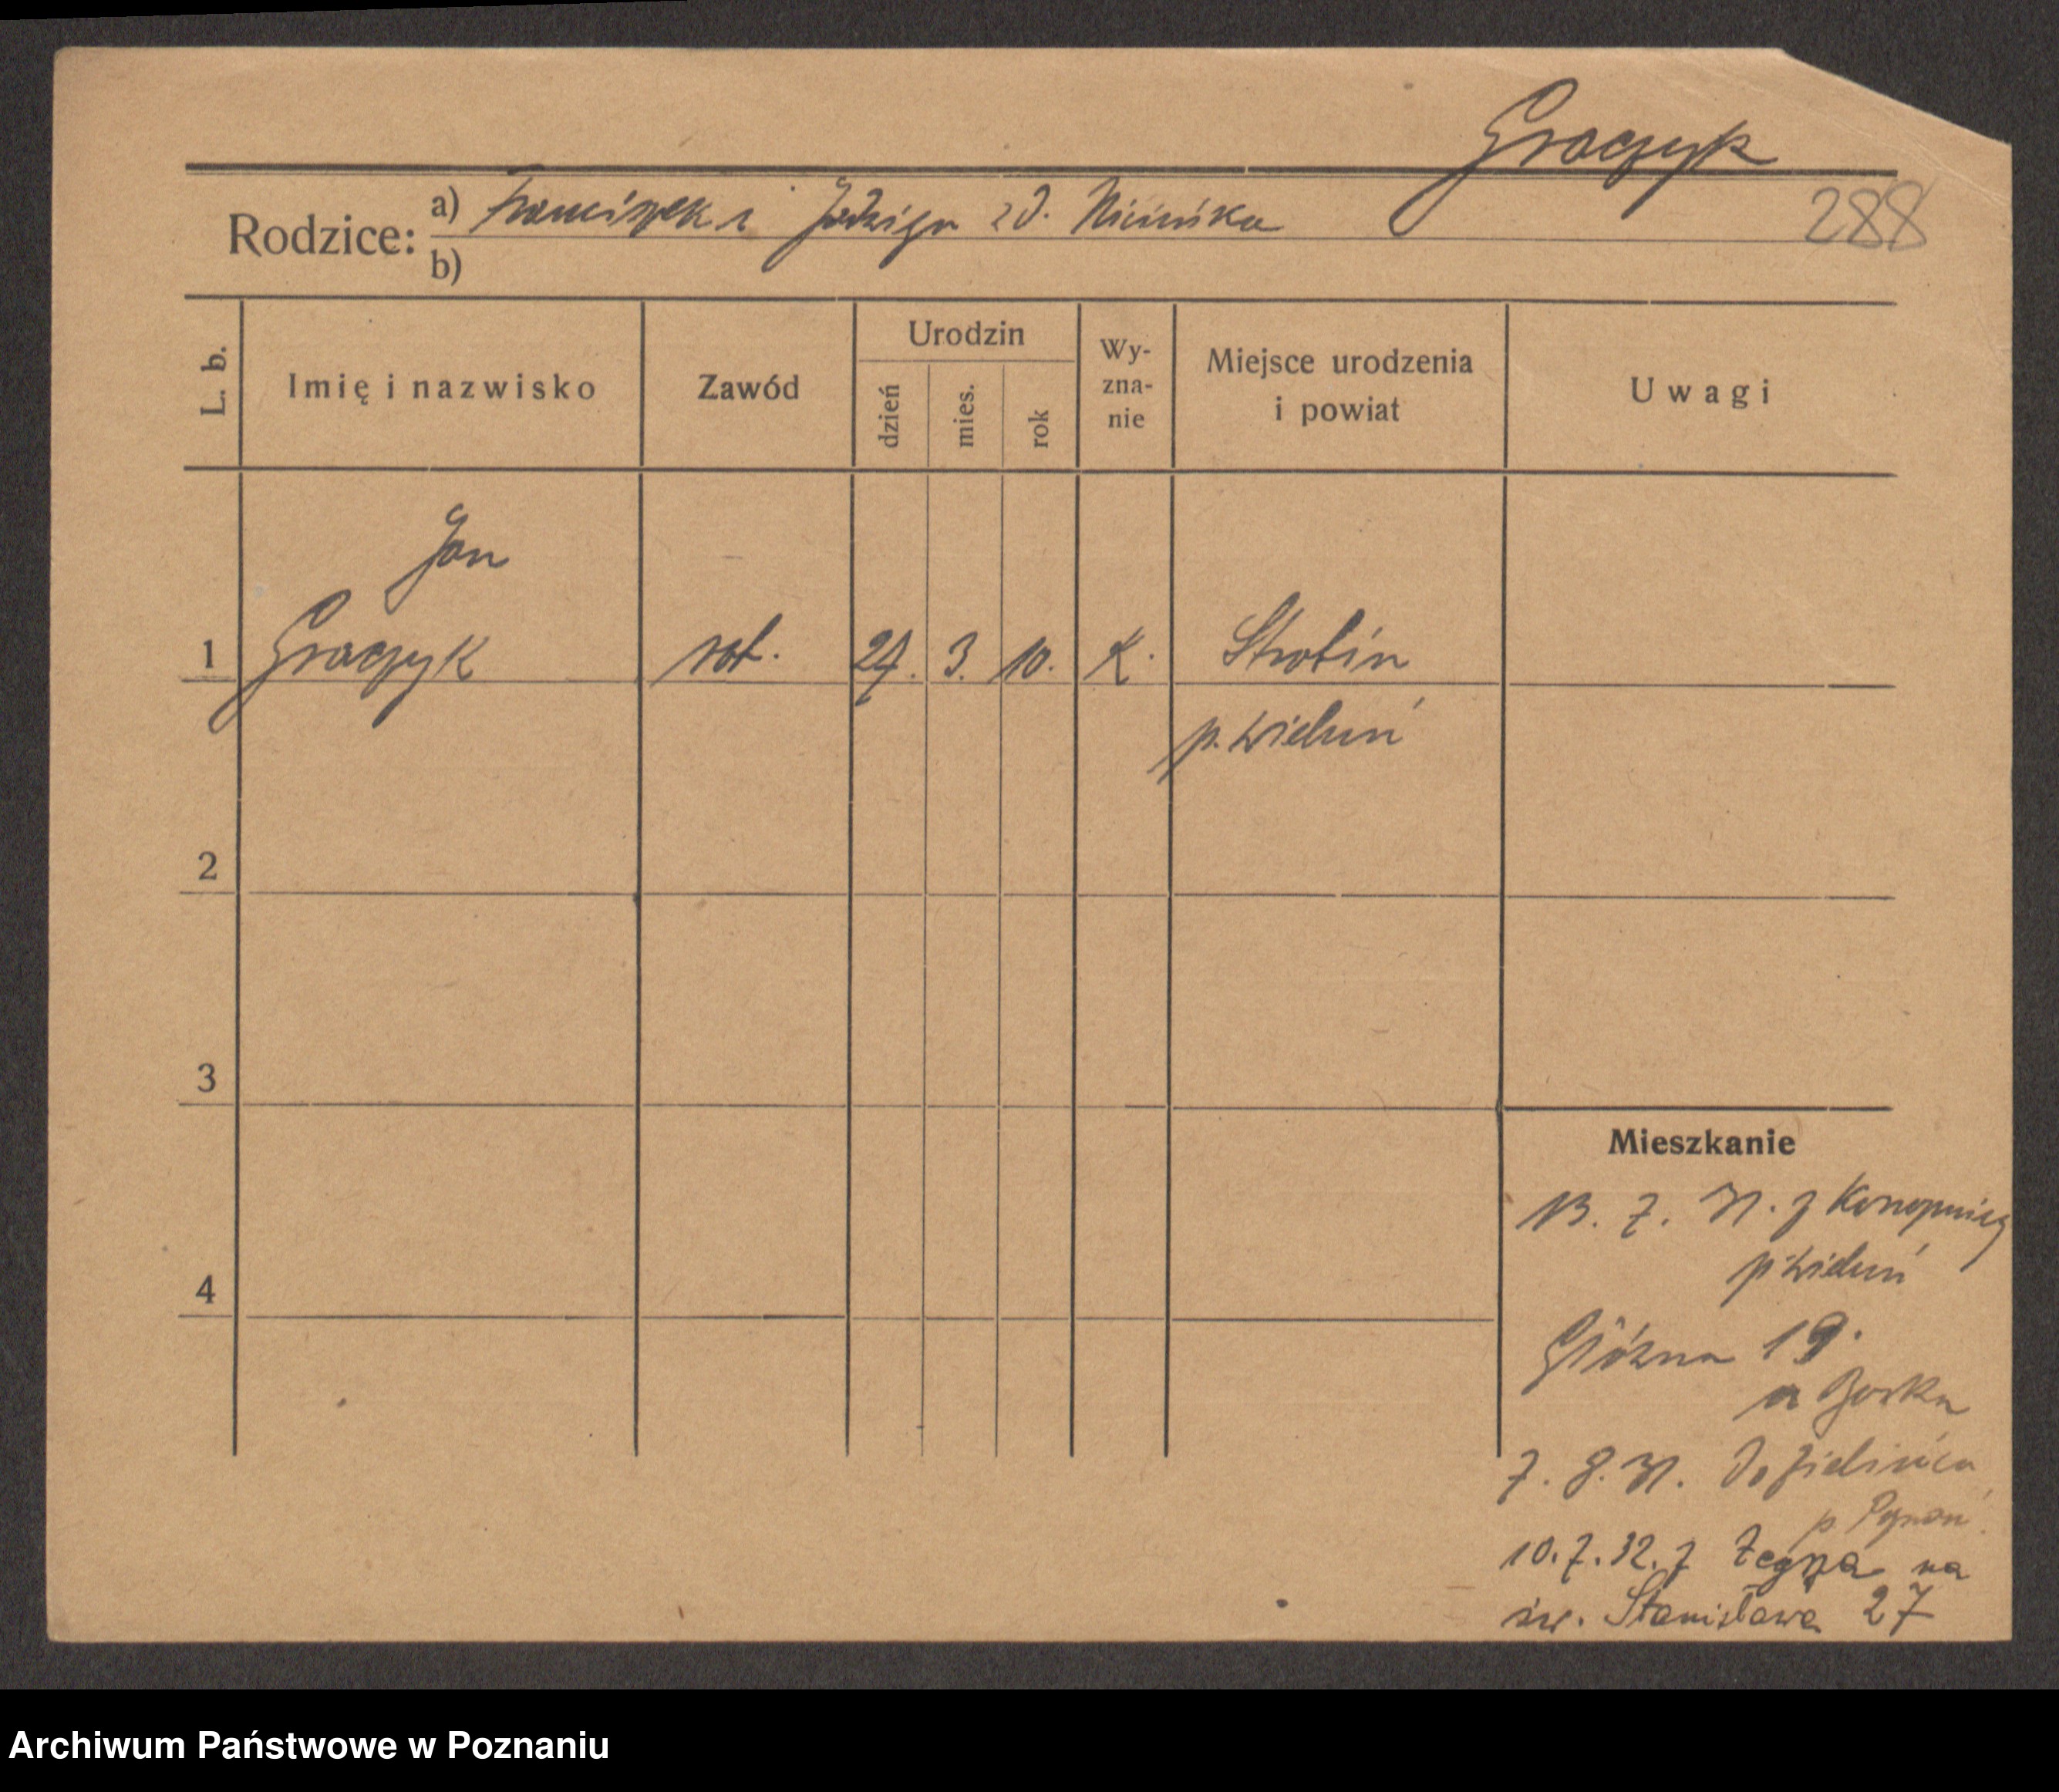 Graczyk
288
Rodzice: a) Franciszek i Jadwiga zd. Nicińska
b)
L. b. Imię i nazwisko Zawód Urodzin dzień mies. rok Wy-zna-nie Miejsce urodzenia i powiat Uwagi
Jan
1 Graczyk rob. 24. 3. 10. K. Strobin
p. Wieluń
2
3
Mieszkanie
13. 7. 31. z Konopnicy
p. Wieluń
4
Główna 19.
u Burka
7. 8. 31. Do Zielińca
p. Poznań.
10. 7. 32. z Żegrza na
św. Stanisława 27
Archiwum Państwowe w Poznaniu